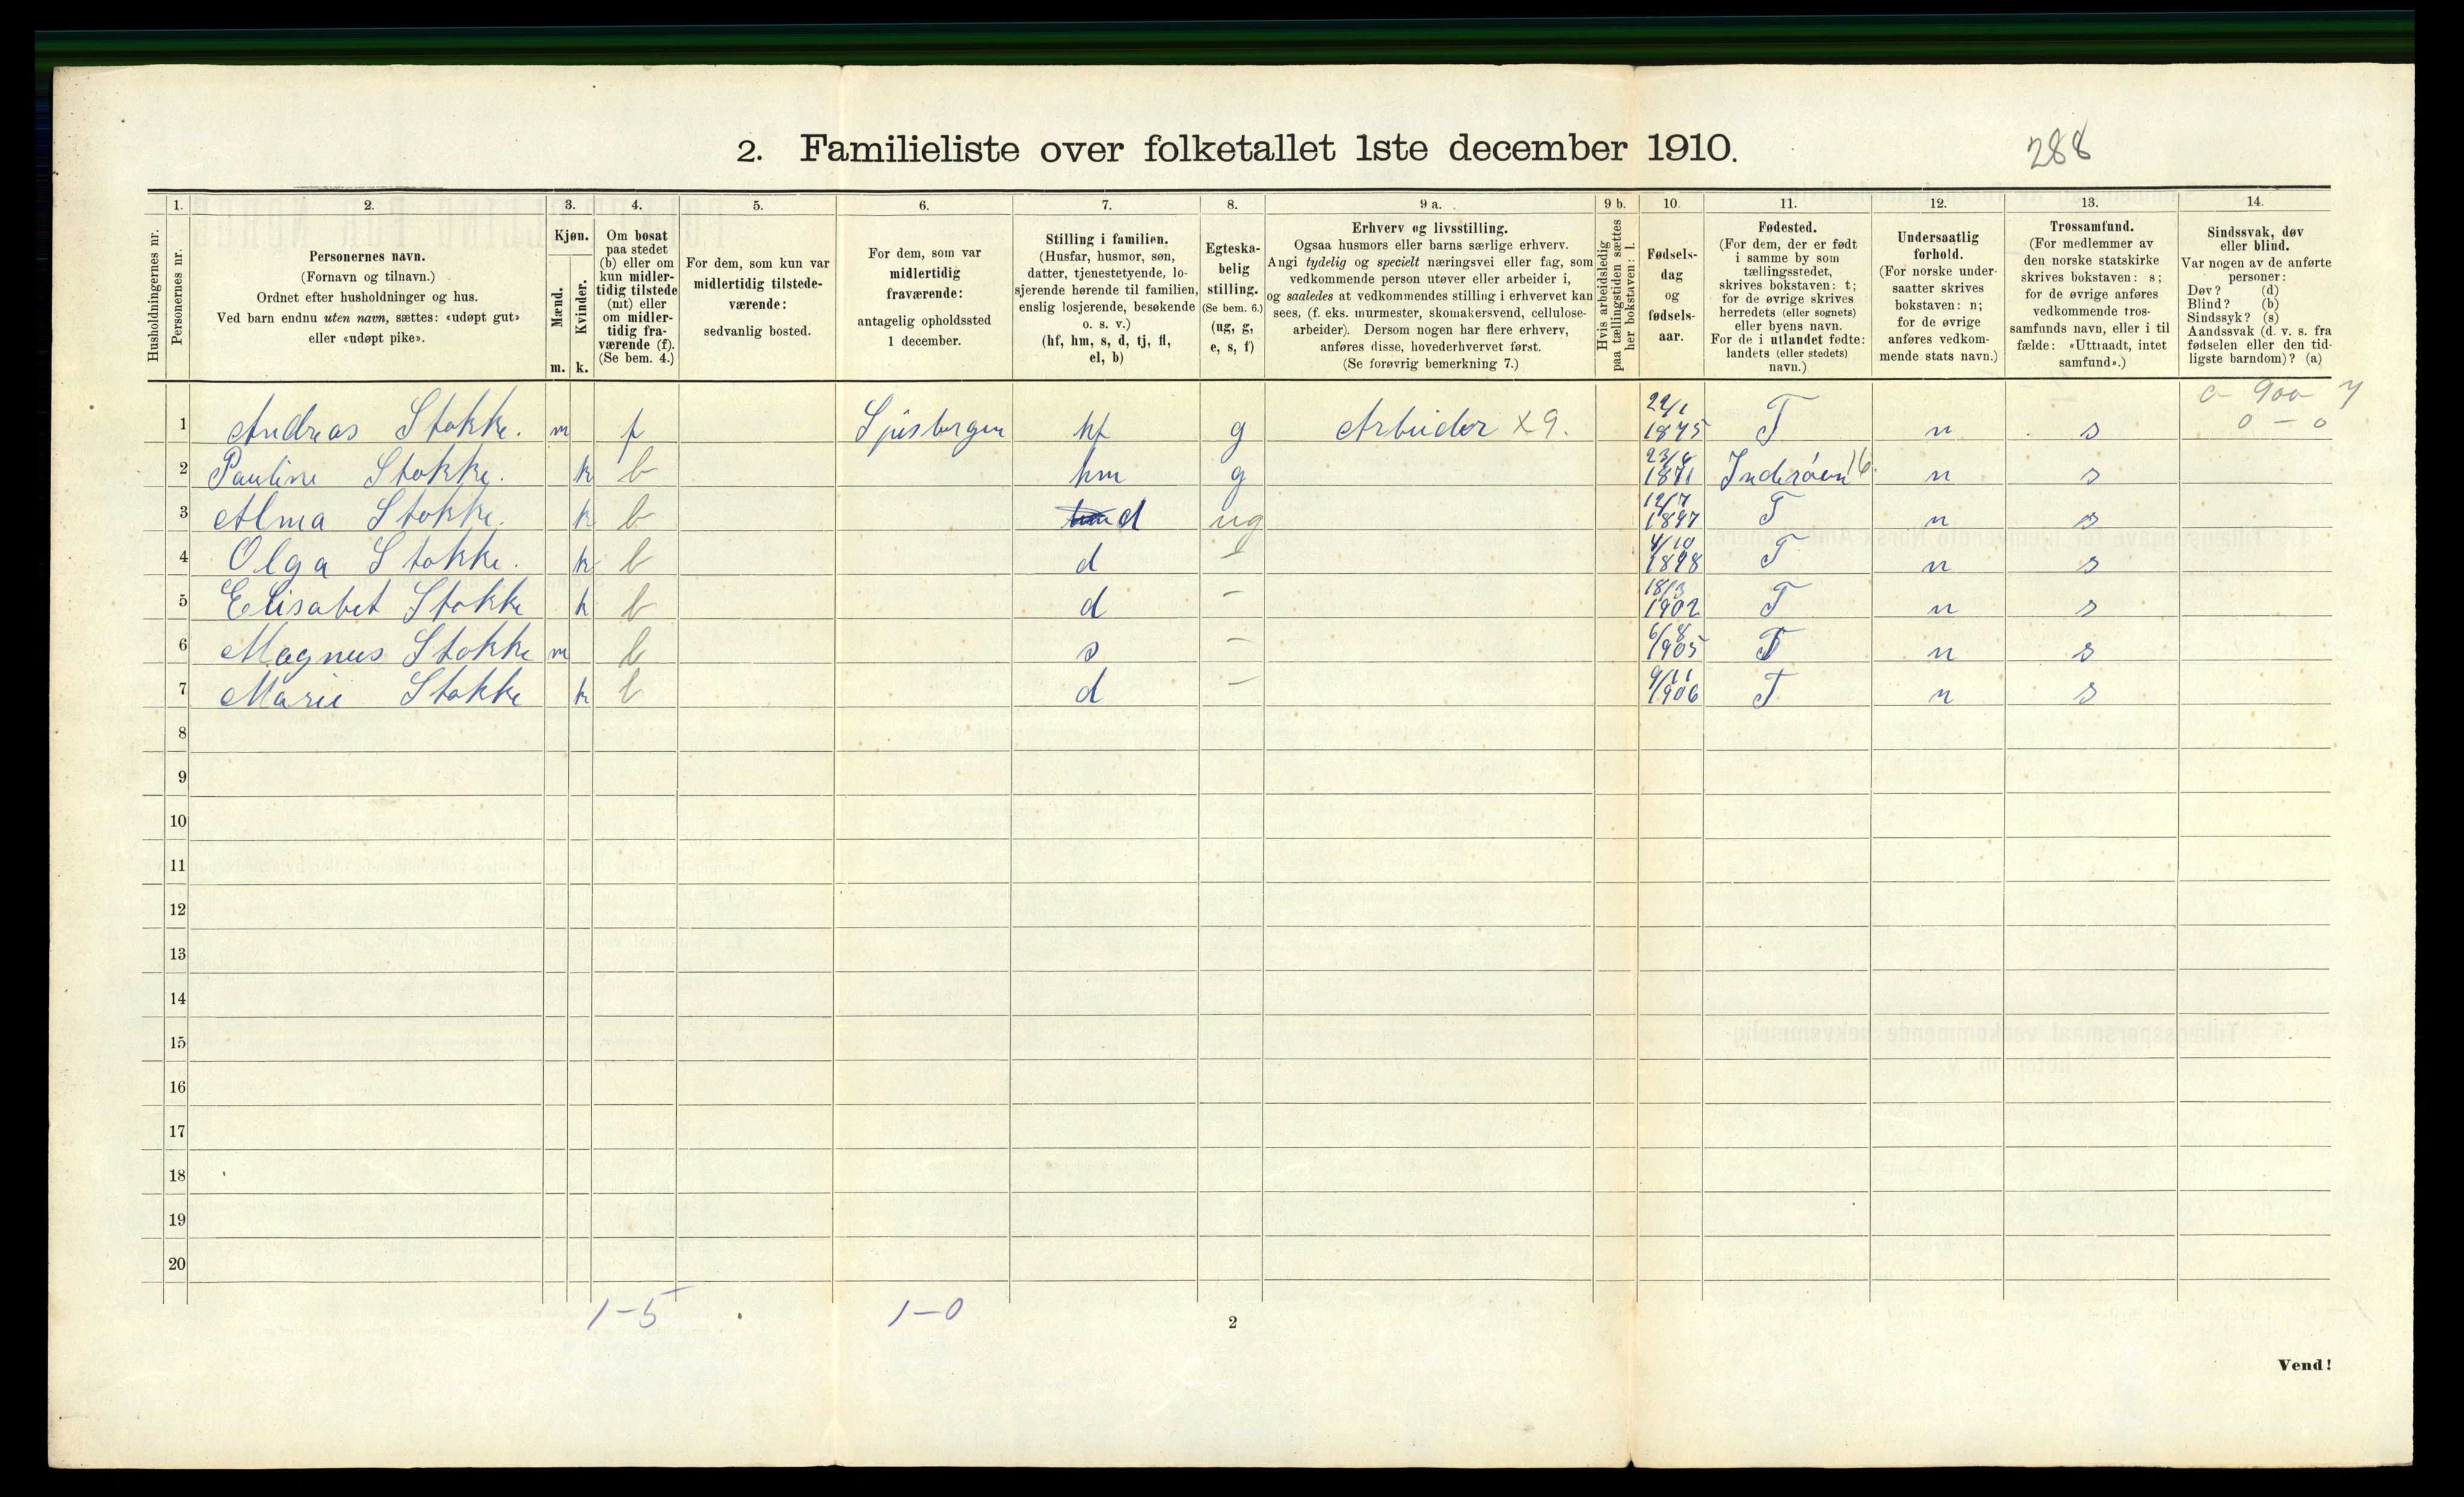 2. Familieliste over folketallet 1ste december 1910.
288
Husholdningernes nr.
1. Personernes nr.
2. Personernes navn. (Fornavn og tilnavn.) Ordnet efter husholdninger og hus. Ved barn endnu uten navn, sættes: «udøpt gut» eller «udøpt pike».
3. Kjøn. Mænd. m. Kvinder. k.
4. Om bosat paa stedet (b) eller om kun midlertidig tilstede (mt) eller om midlertidig fraværende (f). (Se bem. 4.)
5. For dem, som kun var midlertidig tilstedeværende: sedvanlig bosted.
6. For dem, som var midlertidig fraværende: antagelig opholdssted 1 december.
7. Stilling i familien. (Husfar, husmor, søn, datter, tjenestetyende, losjerende hørende til familien, enslig losjerende, besøkende o. s. v.) (hf, hm, s, d, tj, fl, el, b)
8. Egteskabelig stilling. (Se bem. 6.) (ug, g, e, s, f)
9 a. Erhverv og livsstilling. Ogsaa husmors eller barns særlige erhverv. Angi tydelig og specielt næringsvei eller fag, som vedkommende person utøver eller arbeider i, og saaledes at vedkommendes stilling i erhvervet kan sees, (f. eks. murmester, skomakersvend, cellulosearbeider). Dersom nogen har flere erhverv, anføres disse, hovederhvervet først. (Se forøvrig bemerkning 7.)
9 b. Hvis arbeidsledig paa tællingstiden sættes her bokstaven: l.
10. Fødselsdag og fødselsaar.
11. Fødested. (For dem, der er født i samme by som tællingsstedet, skrives bokstaven: t; for de øvrige skrives herredets (eller sognets) eller byens navn. For de i utlandet fødte: landets (eller stedets) navn.)
12. Undersaatlig forhold. (For norske undersaatter skrives bokstaven: n; for de øvrige anføres vedkommende stats navn.)
13. Trossamfund. (For medlemmer av den norske statskirke skrives bokstaven: s; for de øvrige anføres vedkommende trossamfunds navn, eller i tilfælde: «Uttraadt, intet samfund».)
14. Sindssvak, døv eller blind. Var nogen av de anførte personer: Døv? (d) Blind? (b) Sindssyk? (s) Aandssvak (d. v. s. fra fødselen eller den tidligste barndom)? (a)
0 - 900 - 7
0 - 0
1 Andreas Stokke. m f hf g Arbeider X 9. 22/1 1875 T n s
2 Pauline Stokke. k b hm g 1871 Inderøen 16. n s
3 Alma Stokke. k b hm d ug 12/7 1897 T n s
4 Olga Stokke. k b d - 4/10 1898 T n s
5 Elisabet Stokke k b d - 18/3 1902 T n s
6 Magnus Stokke m b s - 6/8 1905 T n s
7 Marie Stokke k b d - 9/11 1906 T n s
8
9
10
11
12
13
14
15
16
17
18
19
20
1-5 1-0
2
Vend!